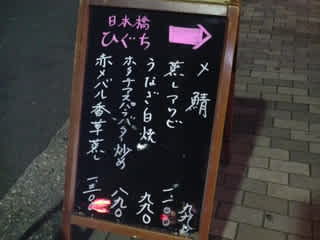 日本橋
ひぐち
〆鯖
蒸しアワビ 一一〇〇
うなぎ白焼 九九〇
ホタテアスパラバター炒め 八九〇
赤メバル香草蒸し